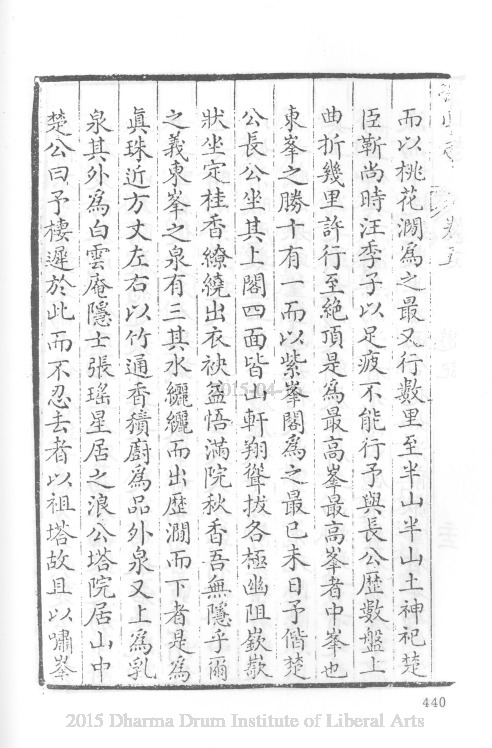 而以桃花澗爲之最又行數里至半山半山土神祀楚
臣靳尚時汪季子以足疲不能行予與長公歷數盤上
曲折幾里許行至絶頂是爲最高峯最高峯者中峯也
東峯之勝十有一而以紫峯閣爲之最已未日予偕楚
公長公坐其上閣四面皆山軒翔聳拔各極幽阻嶔嶔
狀坐定桂香繚繞出衣袂益悟滿院秋香吾無隱乎爾
之義東峯之泉有三其水纚纚而出歷澗而下者是爲
眞珠近方丈左右以竹通香積廚爲品外泉又上爲乳
泉其外爲白雲庵隱士張瑤星居之浪公塔院居山中
楚公曰予棲遲於此而不忍去者以祖塔故且以嘯峯
440
2015 Dharma Drum Institute of Liberal Arts